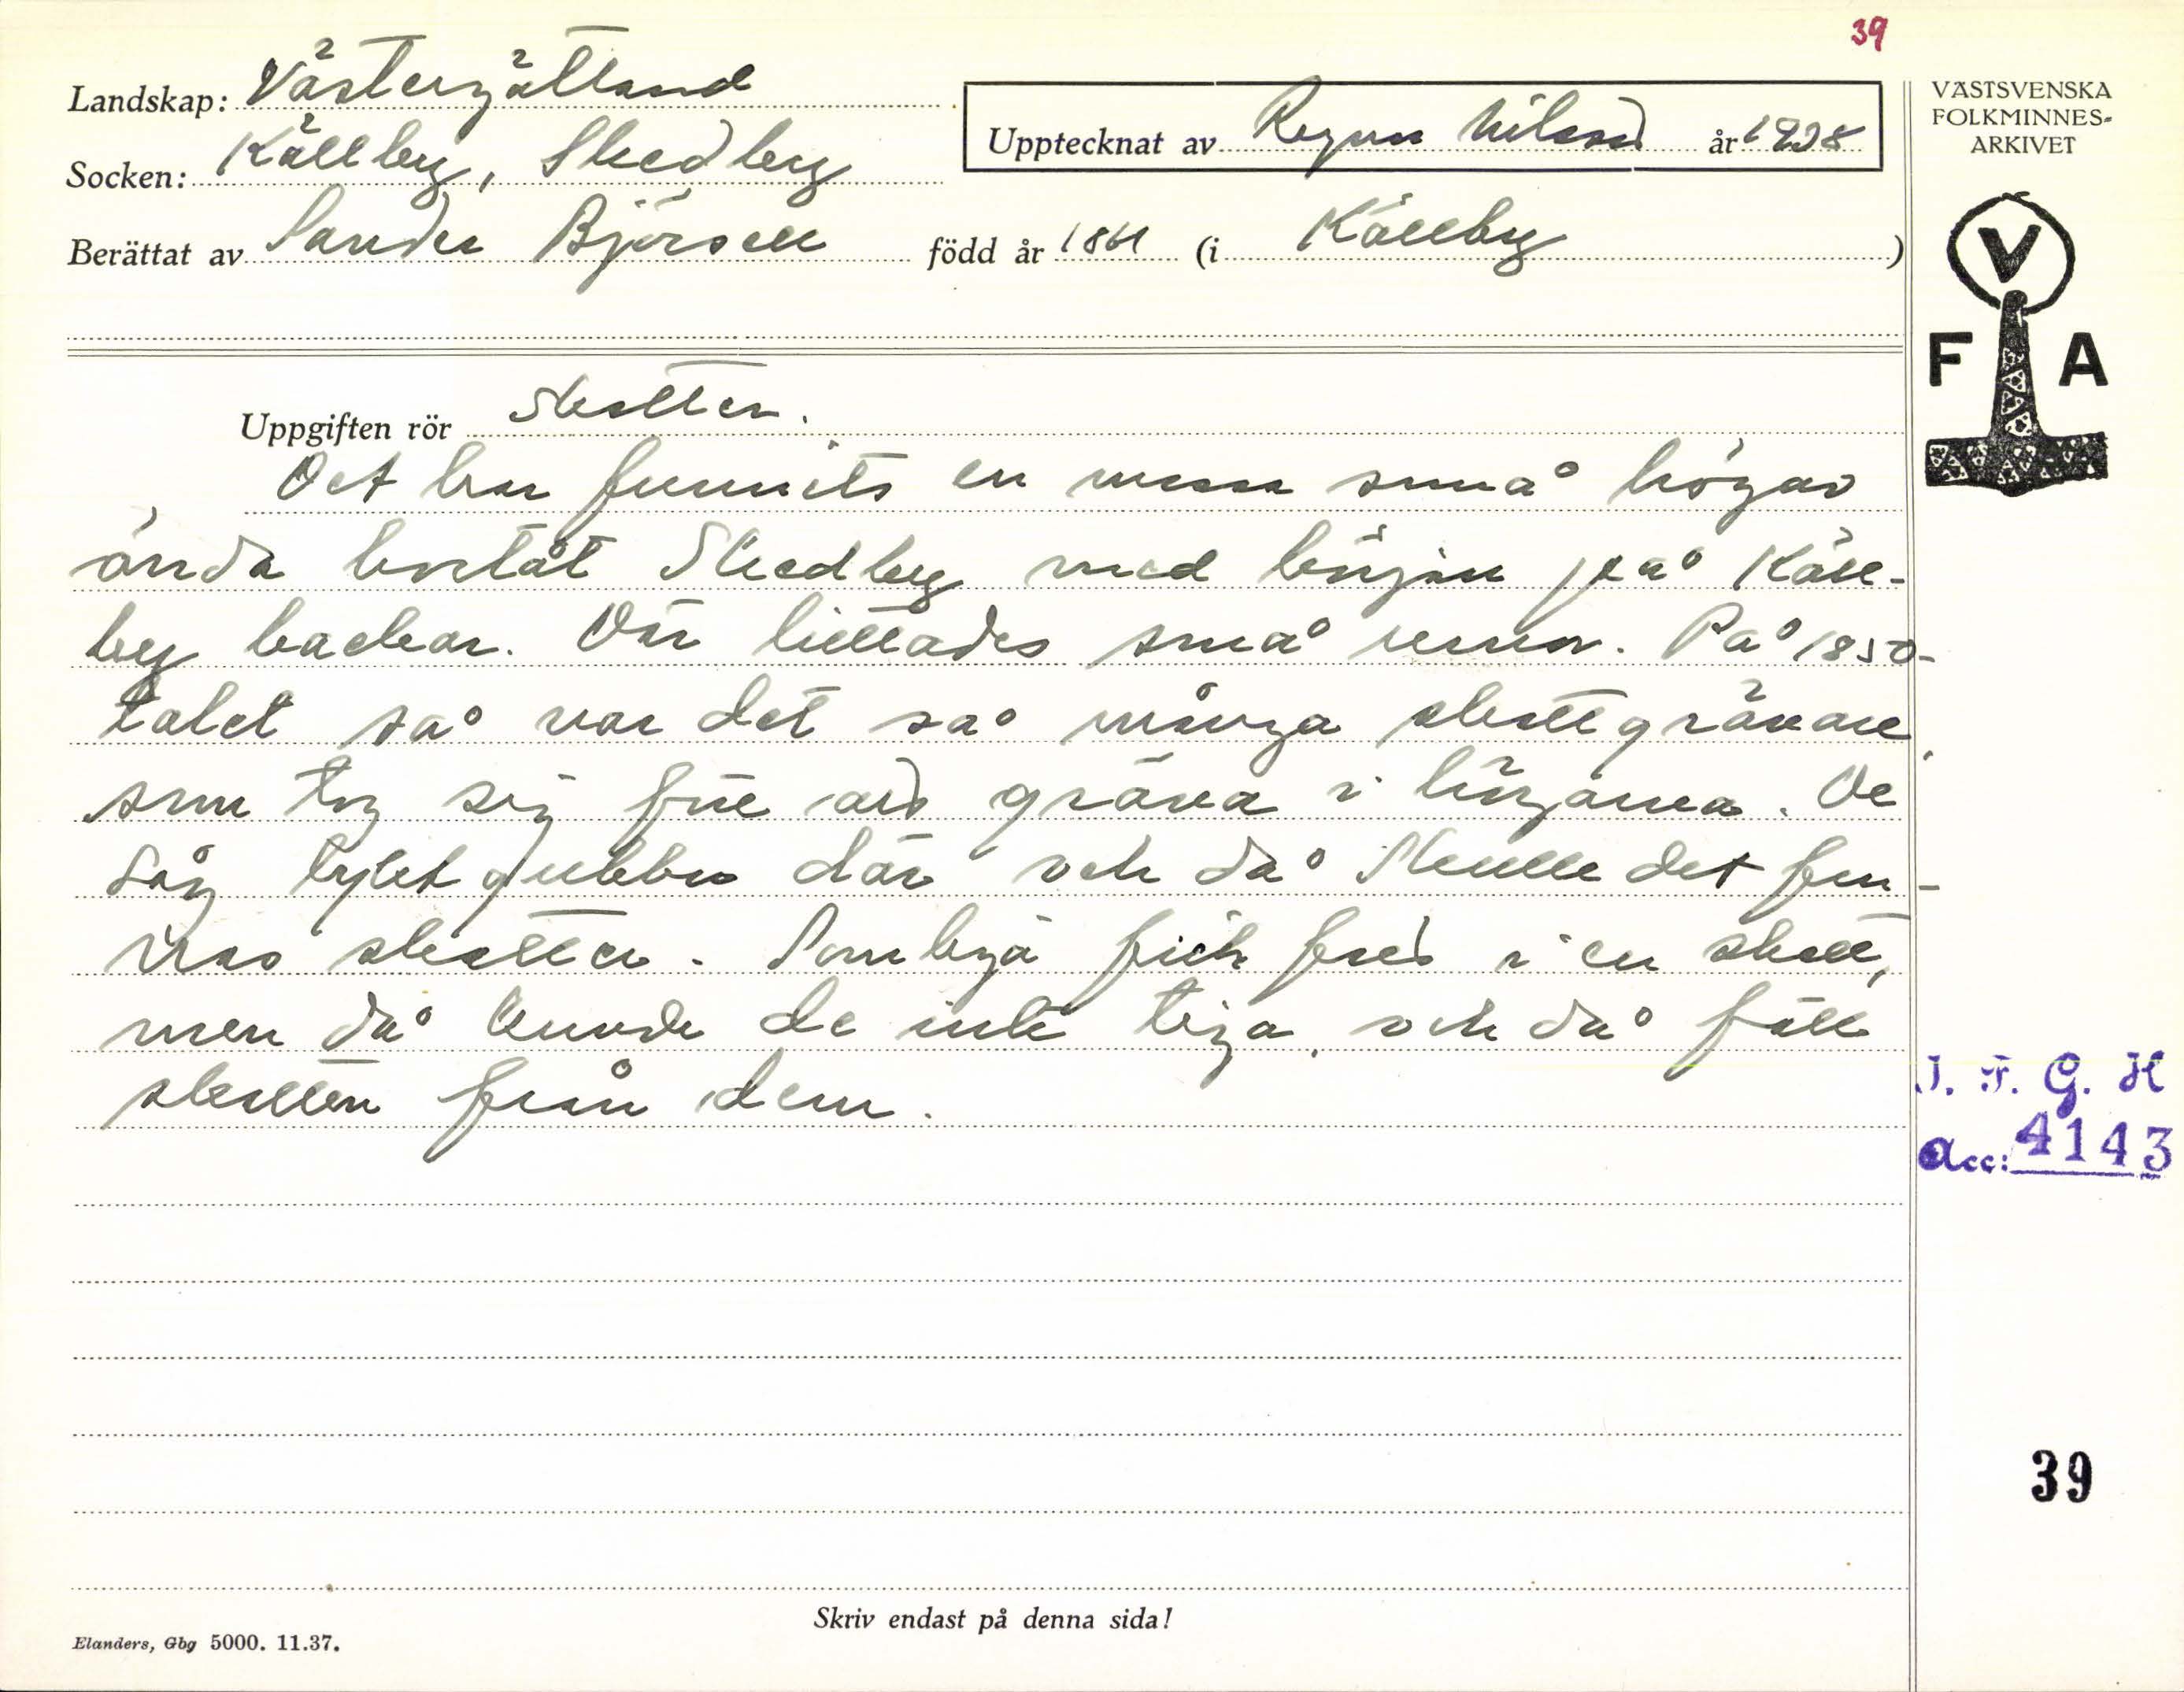 39
Landskap: Västergötland
Socken: Källby, Skedberg
Upptecknat av Ragnar Nilsson år 1938
Berättat av Sander Björsell född år 1861 (i Källby)
VÄSTSVENSKA
FOLKMINNES-
ARKIVET
V
F A
Uppgiften rör skatter.
Det har funnits en massa små högar
ända bortåt Skedberg med början på Käll-
by backar. Där hittades små urnor. På 1850-
talet så var det så många skattgrävare,
som tog sig före att gräva i högarna. De
såg lyktgubbar där och då skulle det fin-
nas skatter. Somliga fick fred i en skatt,
men då kunde de inte tiga, och då föll
skatten från dem.
I. F. G. H
Acc: 4143
39
Skriv endast på denna sida!
Elanders, Gbg 5000. 11.37.